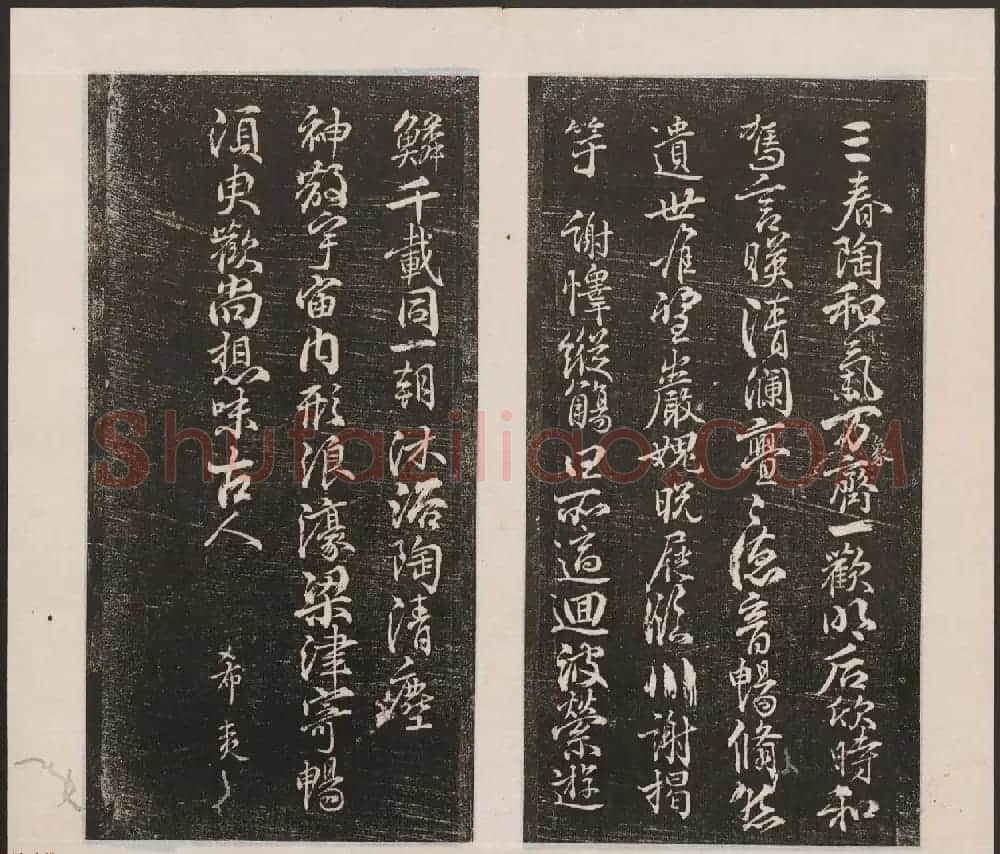 三春陶和氣万象齊一歡明后欣時和
駕言暎清瀾亹〻德音暢脩然
遺世難望巖媿脫屣臨川謝揭
竿 謝懌縱觴所適迴波縈遊
鱗千載同一朝沐浴陶清塵
神散宇宙内形浪濠梁津寄暢
須臾歡尚想味古人
希夷
Shufaziliao.COM